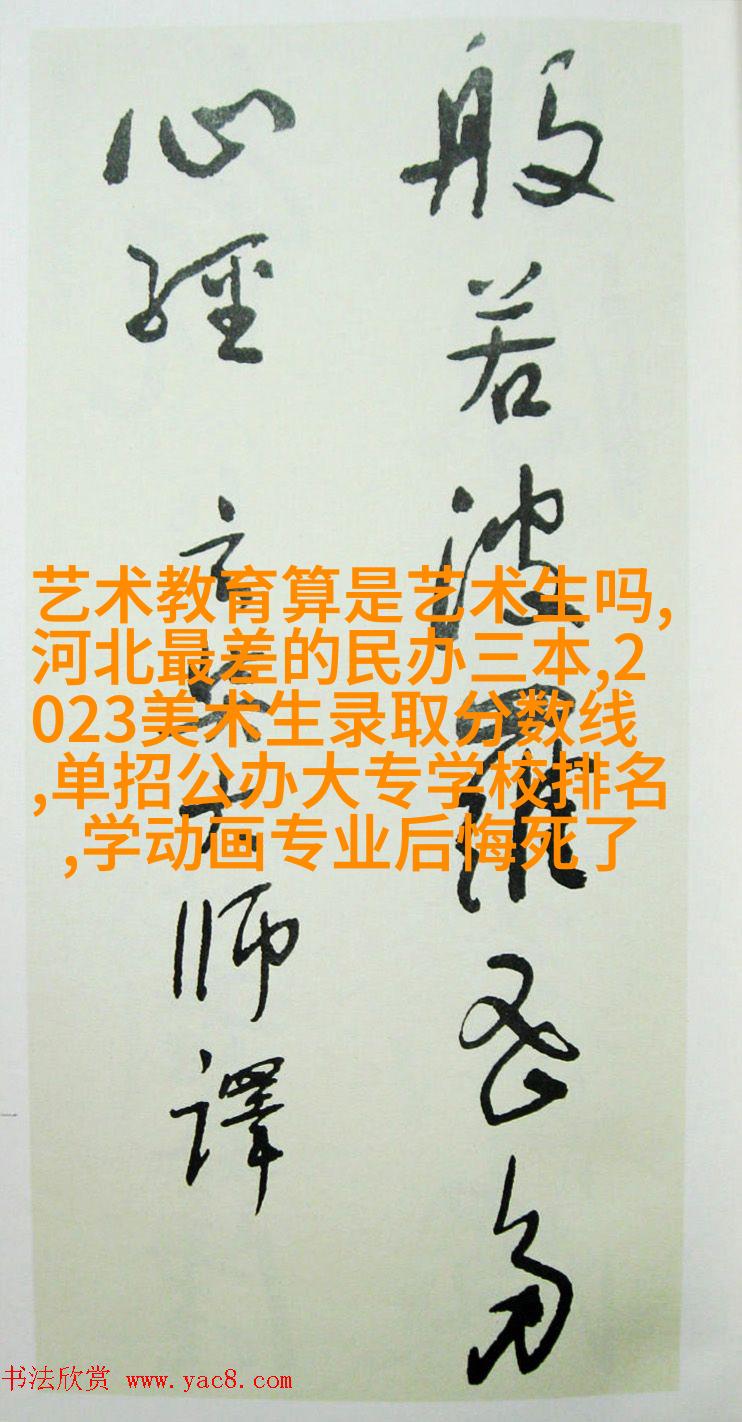 般若波羅蜜多
心經 玄奘大師譯
艺术教育算是艺术生吗,
河北最差的民办三本,2
023美术生录取分数线
,单招公办大专学校排名
,学动画专业后悔死了
书法欣赏 www.yac8.com